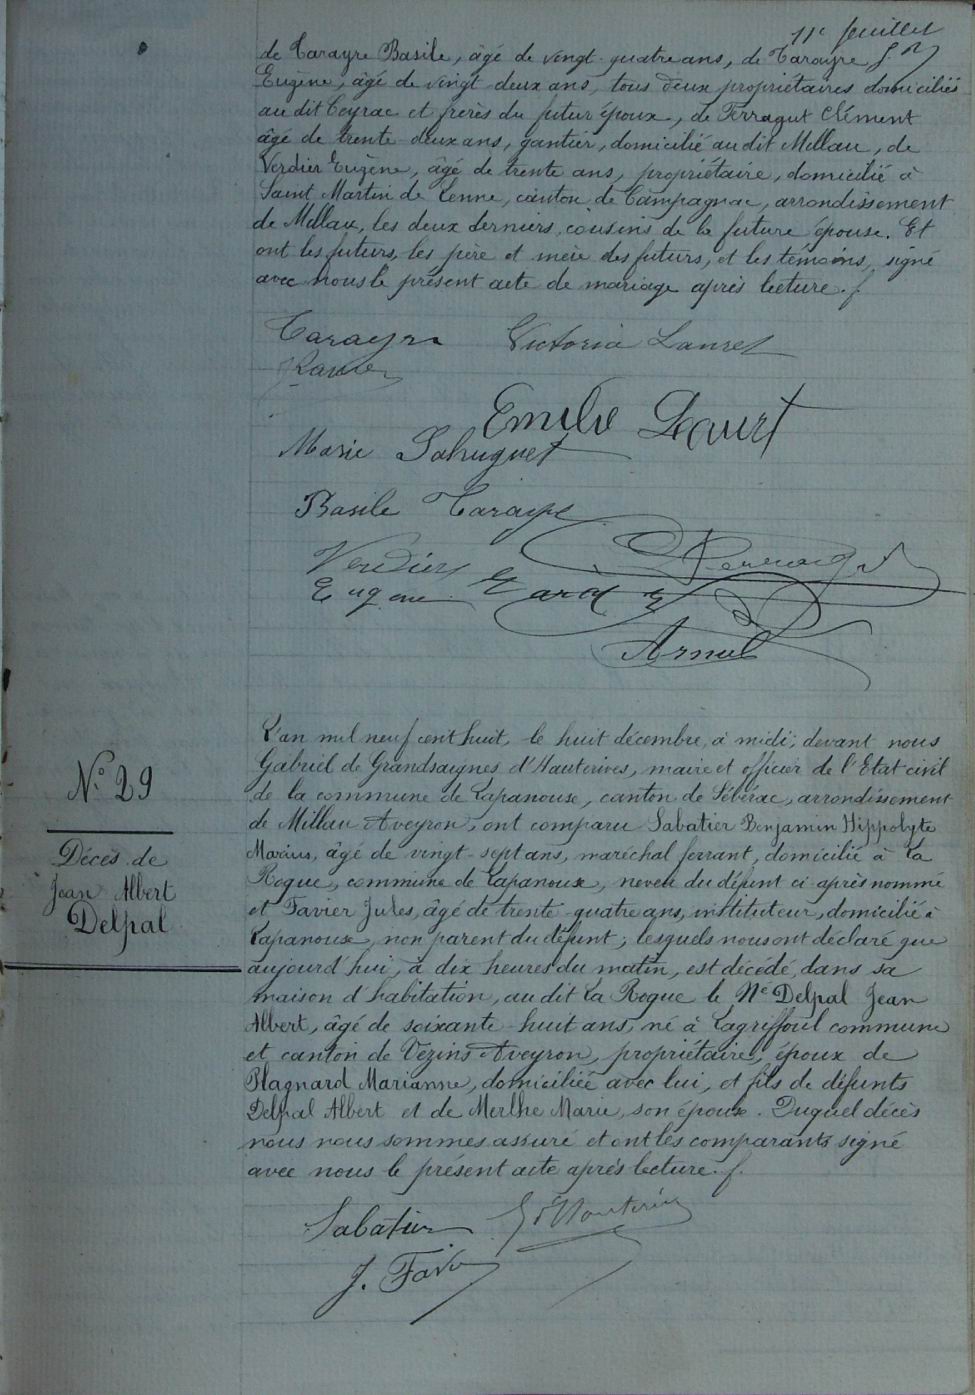 11e feuillet
de Tarayre Basile, âgé de vingt-quatre ans, de Tarayre
Eugène, âgé de vingt-deux ans, tous deux propriétaires domiciliés
au dit Ceyrac et frères du futur époux, de Ferragut Clément
âgé de trente-deux ans, gantier, domicilié au dit Millau, de
Verdier Eugène, âgé de trente ans, propriétaire, domicilié à
Saint Martin de Lenne, canton de Campagnac, arrondissement
de Millau, les deux derniers, cousins de la future épouse. Et
ont les futurs, les père et mère des futurs, et les témoins, signé
avec nous le présent acte de mariage après lecture.
Tarayre Victoria Lauret
Emilie Lauret
Marie Sahuguet
Basile Tarayre
Verdier
Eugène
Arnal
No 29
Décès de
Jean Albert
Delpal
L'an mil neuf cent huit, le huit décembre, à midi; devant nous
Gabriel de Grandsaignes d'Hauterives, maire et officier de l'Etat civil
de la commune de Lapanouse, canton de Sévérac, arrondissement
de Millau Aveyron, ont comparu Sabatier Benjamin Hippolyte
Marius, âgé de vingt-sept ans, maréchal ferrant, domicilié à La
Roque, commune de Lapanouse, neveu du défunt ci-après nommé
et Favier Jules, âgé de trente-quatre ans, instituteur, domicilié à
Lapanouse, non parent du défunt; lesquels nous ont déclaré que
aujourd'hui, à dix heures du matin, est décédé, dans sa
maison d'habitation, au dit La Roque le Né Delpal Jean
Albert, âgé de soixante-huit ans, né à Lagriffoul commune
et canton de Vezins Aveyron, propriétaire, époux de
Plagnard Marianne, domiciliée avec lui, et fils de défunts
Delpal Albert et de Merlhe Marie, son épouse. Duquel décès
nous nous sommes assuré et ont les comparants signé
avec nous le présent acte après lecture.
Sabatier G d'Hauterives
J. Favier